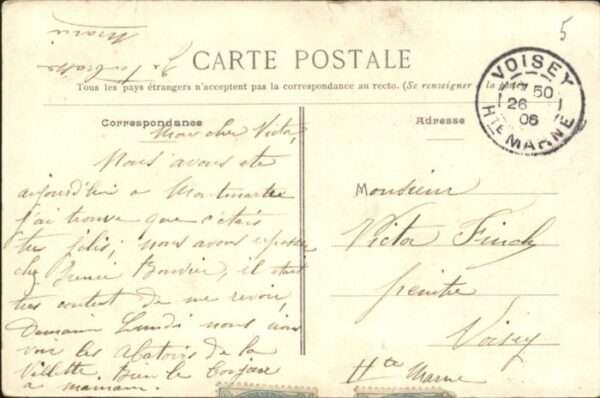 5
Marie
Je t'embrasse
CARTE POSTALE
Tous les pays étrangers n'acceptent pas la correspondance au recto. (Se renseigner à la poste)
VOISEY
50
26
06
Hte MARNE
Correspondance
Adresse
Mon cher Victor,
Nous avons été
aujourd'hui a Montmartre
j'ai trouve que c'etais
tres jolis, nous avons
chez Bouvier, il etait
tres content de me revoir,
Demain Lundi nous irons
voir les abatoirs de la
Villette. Bien le bonjour
a maman.
Monsieur
Victor Finch
peintre
Voisey
Hte Marne